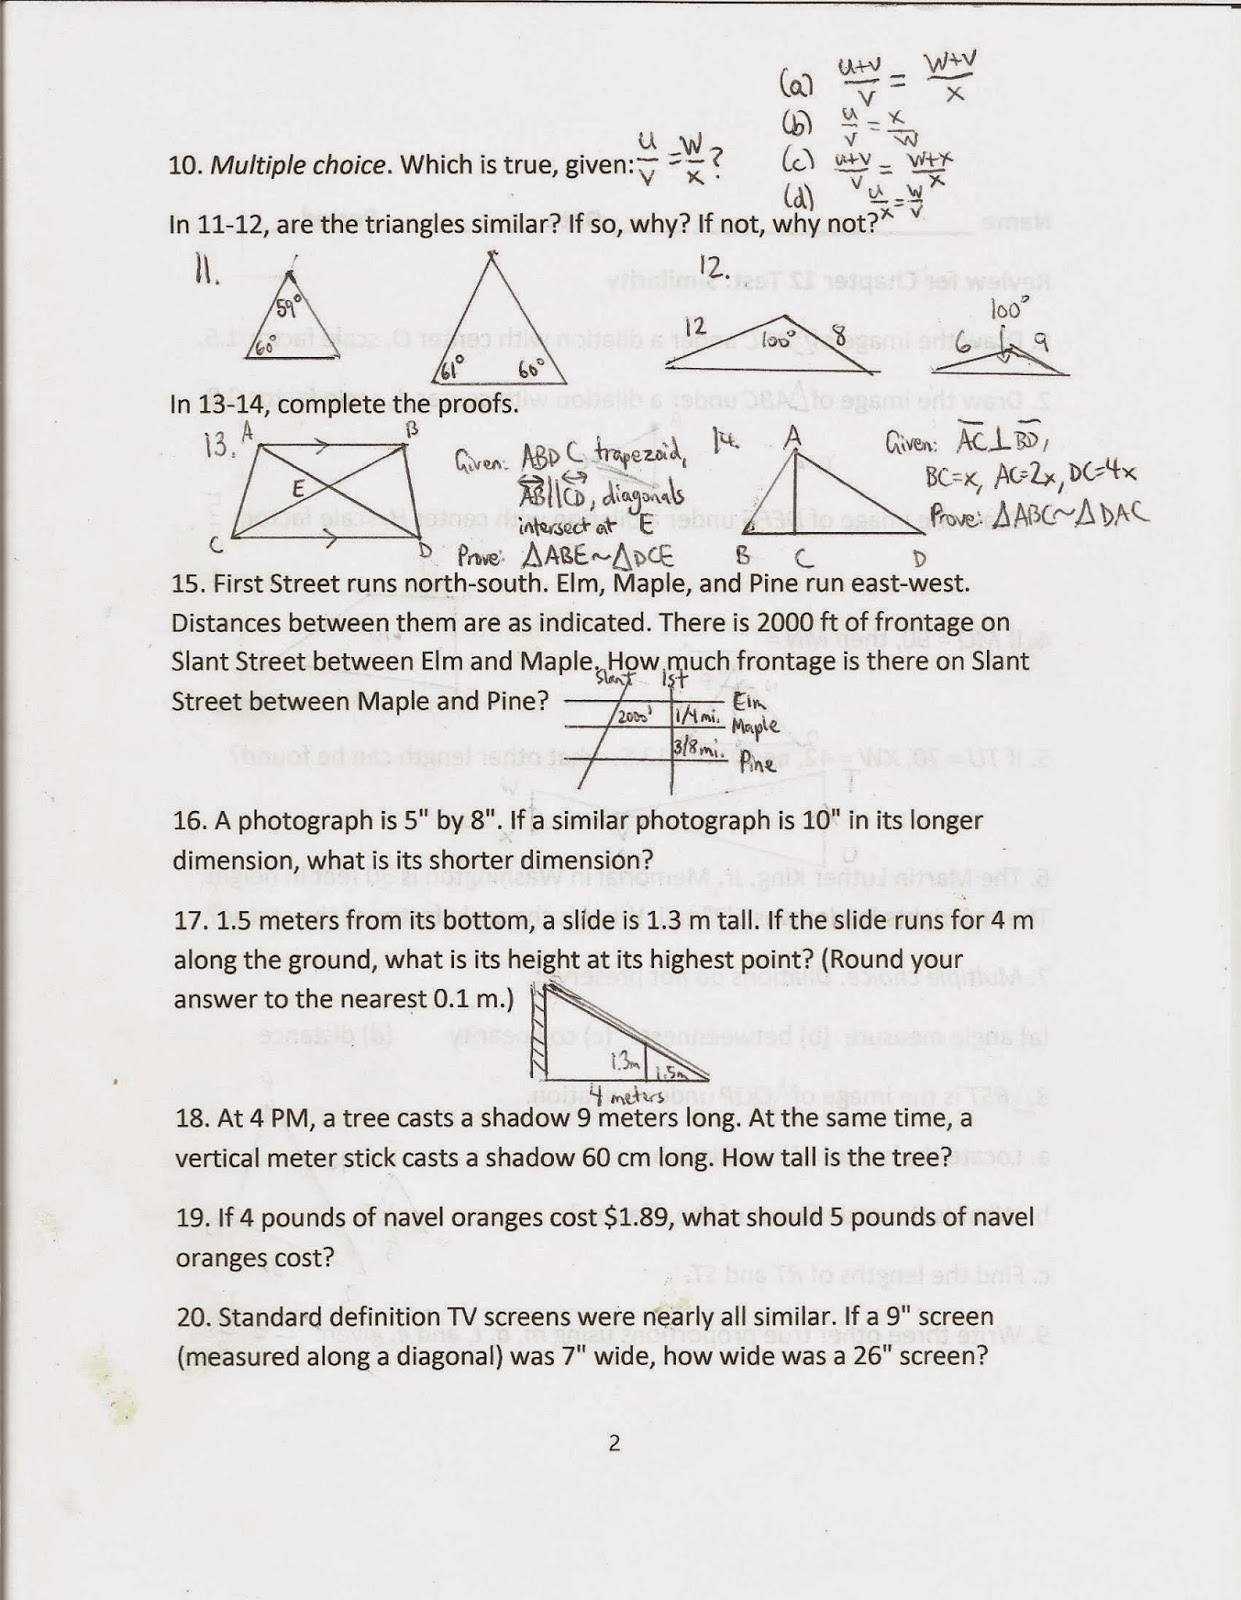 (a) u+v/v = w+v/x
(b) u/v = x/w
10. Multiple choice. Which is true, given: u/v = w/x ?
(c) u+v/v = w+x/x
(d) u/x = w/v
In 11-12, are the triangles similar? If so, why? If not, why not?
11.
59°
60°
61°
60°
12.
12
100°
8
100°
6
9
In 13-14, complete the proofs.
13.
A
B
E
C
D
Given: ABDC trapezoid,
AB||CD, diagonals
intersect at E
Prove: △ABE~△DCE
14.
A
B
C
D
Given: AC⊥BD,
BC=x, AC=2x, DC=4x
Prove: △ABC~△DAC
15. First Street runs north-south. Elm, Maple, and Pine run east-west.
Distances between them are as indicated. There is 2000 ft of frontage on
Slant Street between Elm and Maple. How much frontage is there on Slant
Street between Maple and Pine?
Slant 1st
Elm
2000' 1/4 mi.
Maple
3/8 mi.
Pine
16. A photograph is 5" by 8". If a similar photograph is 10" in its longer
dimension, what is its shorter dimension?
17. 1.5 meters from its bottom, a slide is 1.3 m tall. If the slide runs for 4 m
along the ground, what is its height at its highest point? (Round your
answer to the nearest 0.1 m.)
1.3m
1.5m
4 meters
18. At 4 PM, a tree casts a shadow 9 meters long. At the same time, a
vertical meter stick casts a shadow 60 cm long. How tall is the tree?
19. If 4 pounds of navel oranges cost $1.89, what should 5 pounds of navel
oranges cost?
20. Standard definition TV screens were nearly all similar. If a 9" screen
(measured along a diagonal) was 7" wide, how wide was a 26" screen?
2